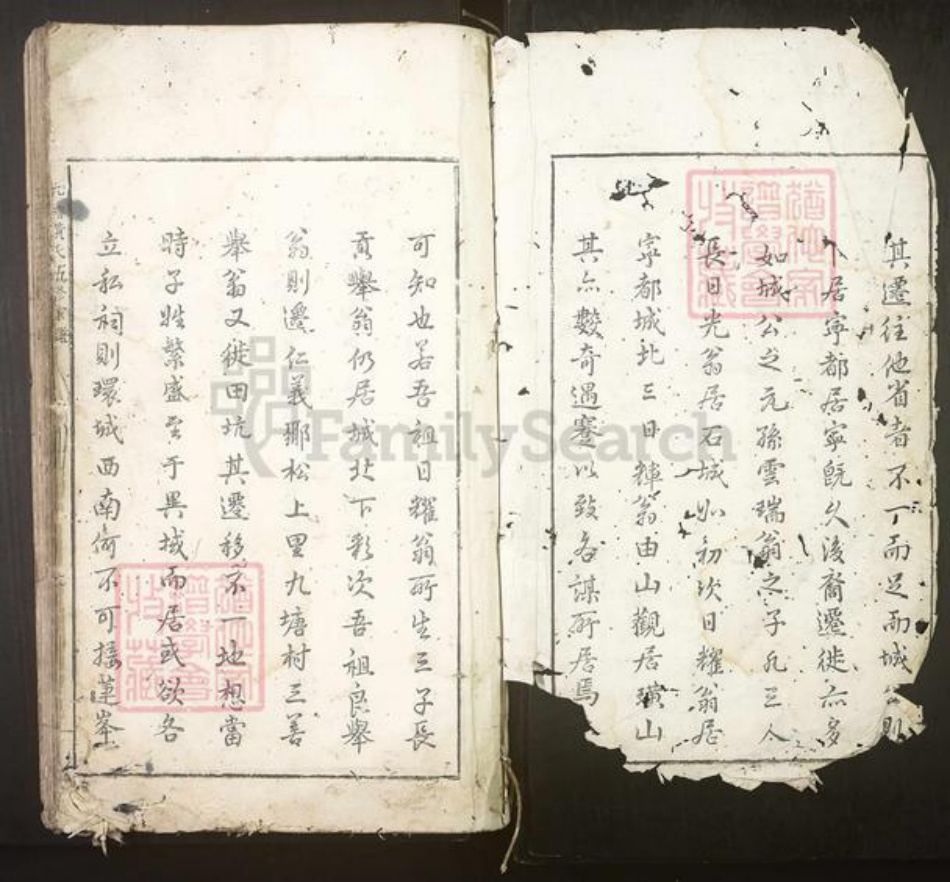 其遷往他省者不一而足而城公則
卜居寧都居寧既久後裔遷徙亦多
如城公之元孫雲瑞翁之子凡三人
長日光翁居石城如初次日耀翁居
寧都城北三日輝翁由山觀居璜山
其亦數奇遇蹇以致各謀所居焉
可知也若吾祖日耀翁所生三子長
貢舉翁仍居城北下彩次吾祖良舉
翁則遷仁義鄉松上里九塘村三善
舉翁又徙田坑其遷移不一地想當
時子姓繁盛至于異域而居或欲各
立私祠則環城西南何不可接蓮峯
猶他家
譜學會
收藏
猶他家
譜學會
收藏
FamilySearch